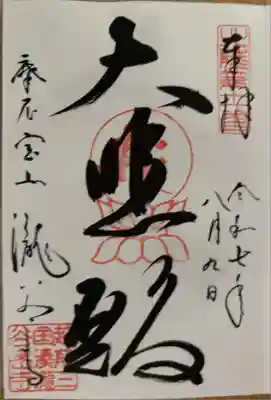 奉拝
令和七年
八月九日
大悲殿
摩尼宝山
瀧谷寺